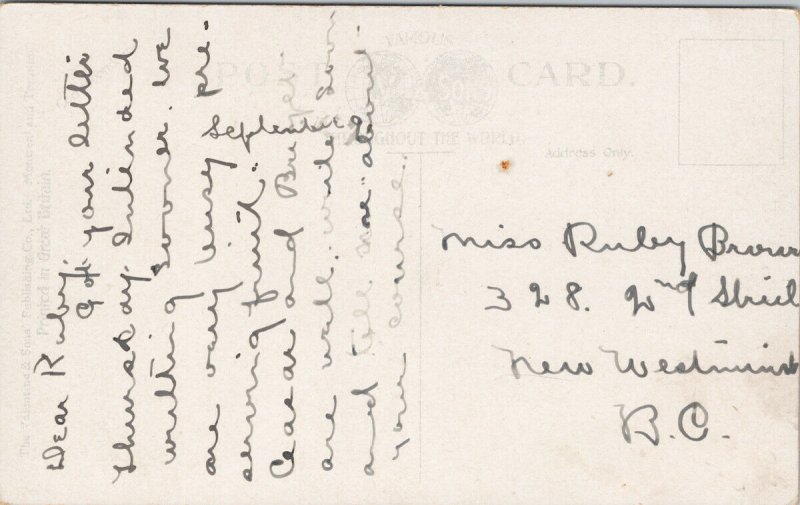 The Valentine & Sons' Publishing Co., Ltd., Montreal and Toronto
Printed in Great Britain.
FAMOUS
POST CARD
THROUGHOUT THE WORLD
Address Only.
Dear Ruby.
Got your letter
Thursday. Intended
writting sooner. We
are very busy pre-
serving fruit.
September
and
are well. write soon
and tell me about
your course.
Miss Ruby
328. 2nd Street
New Westminst
B.C.